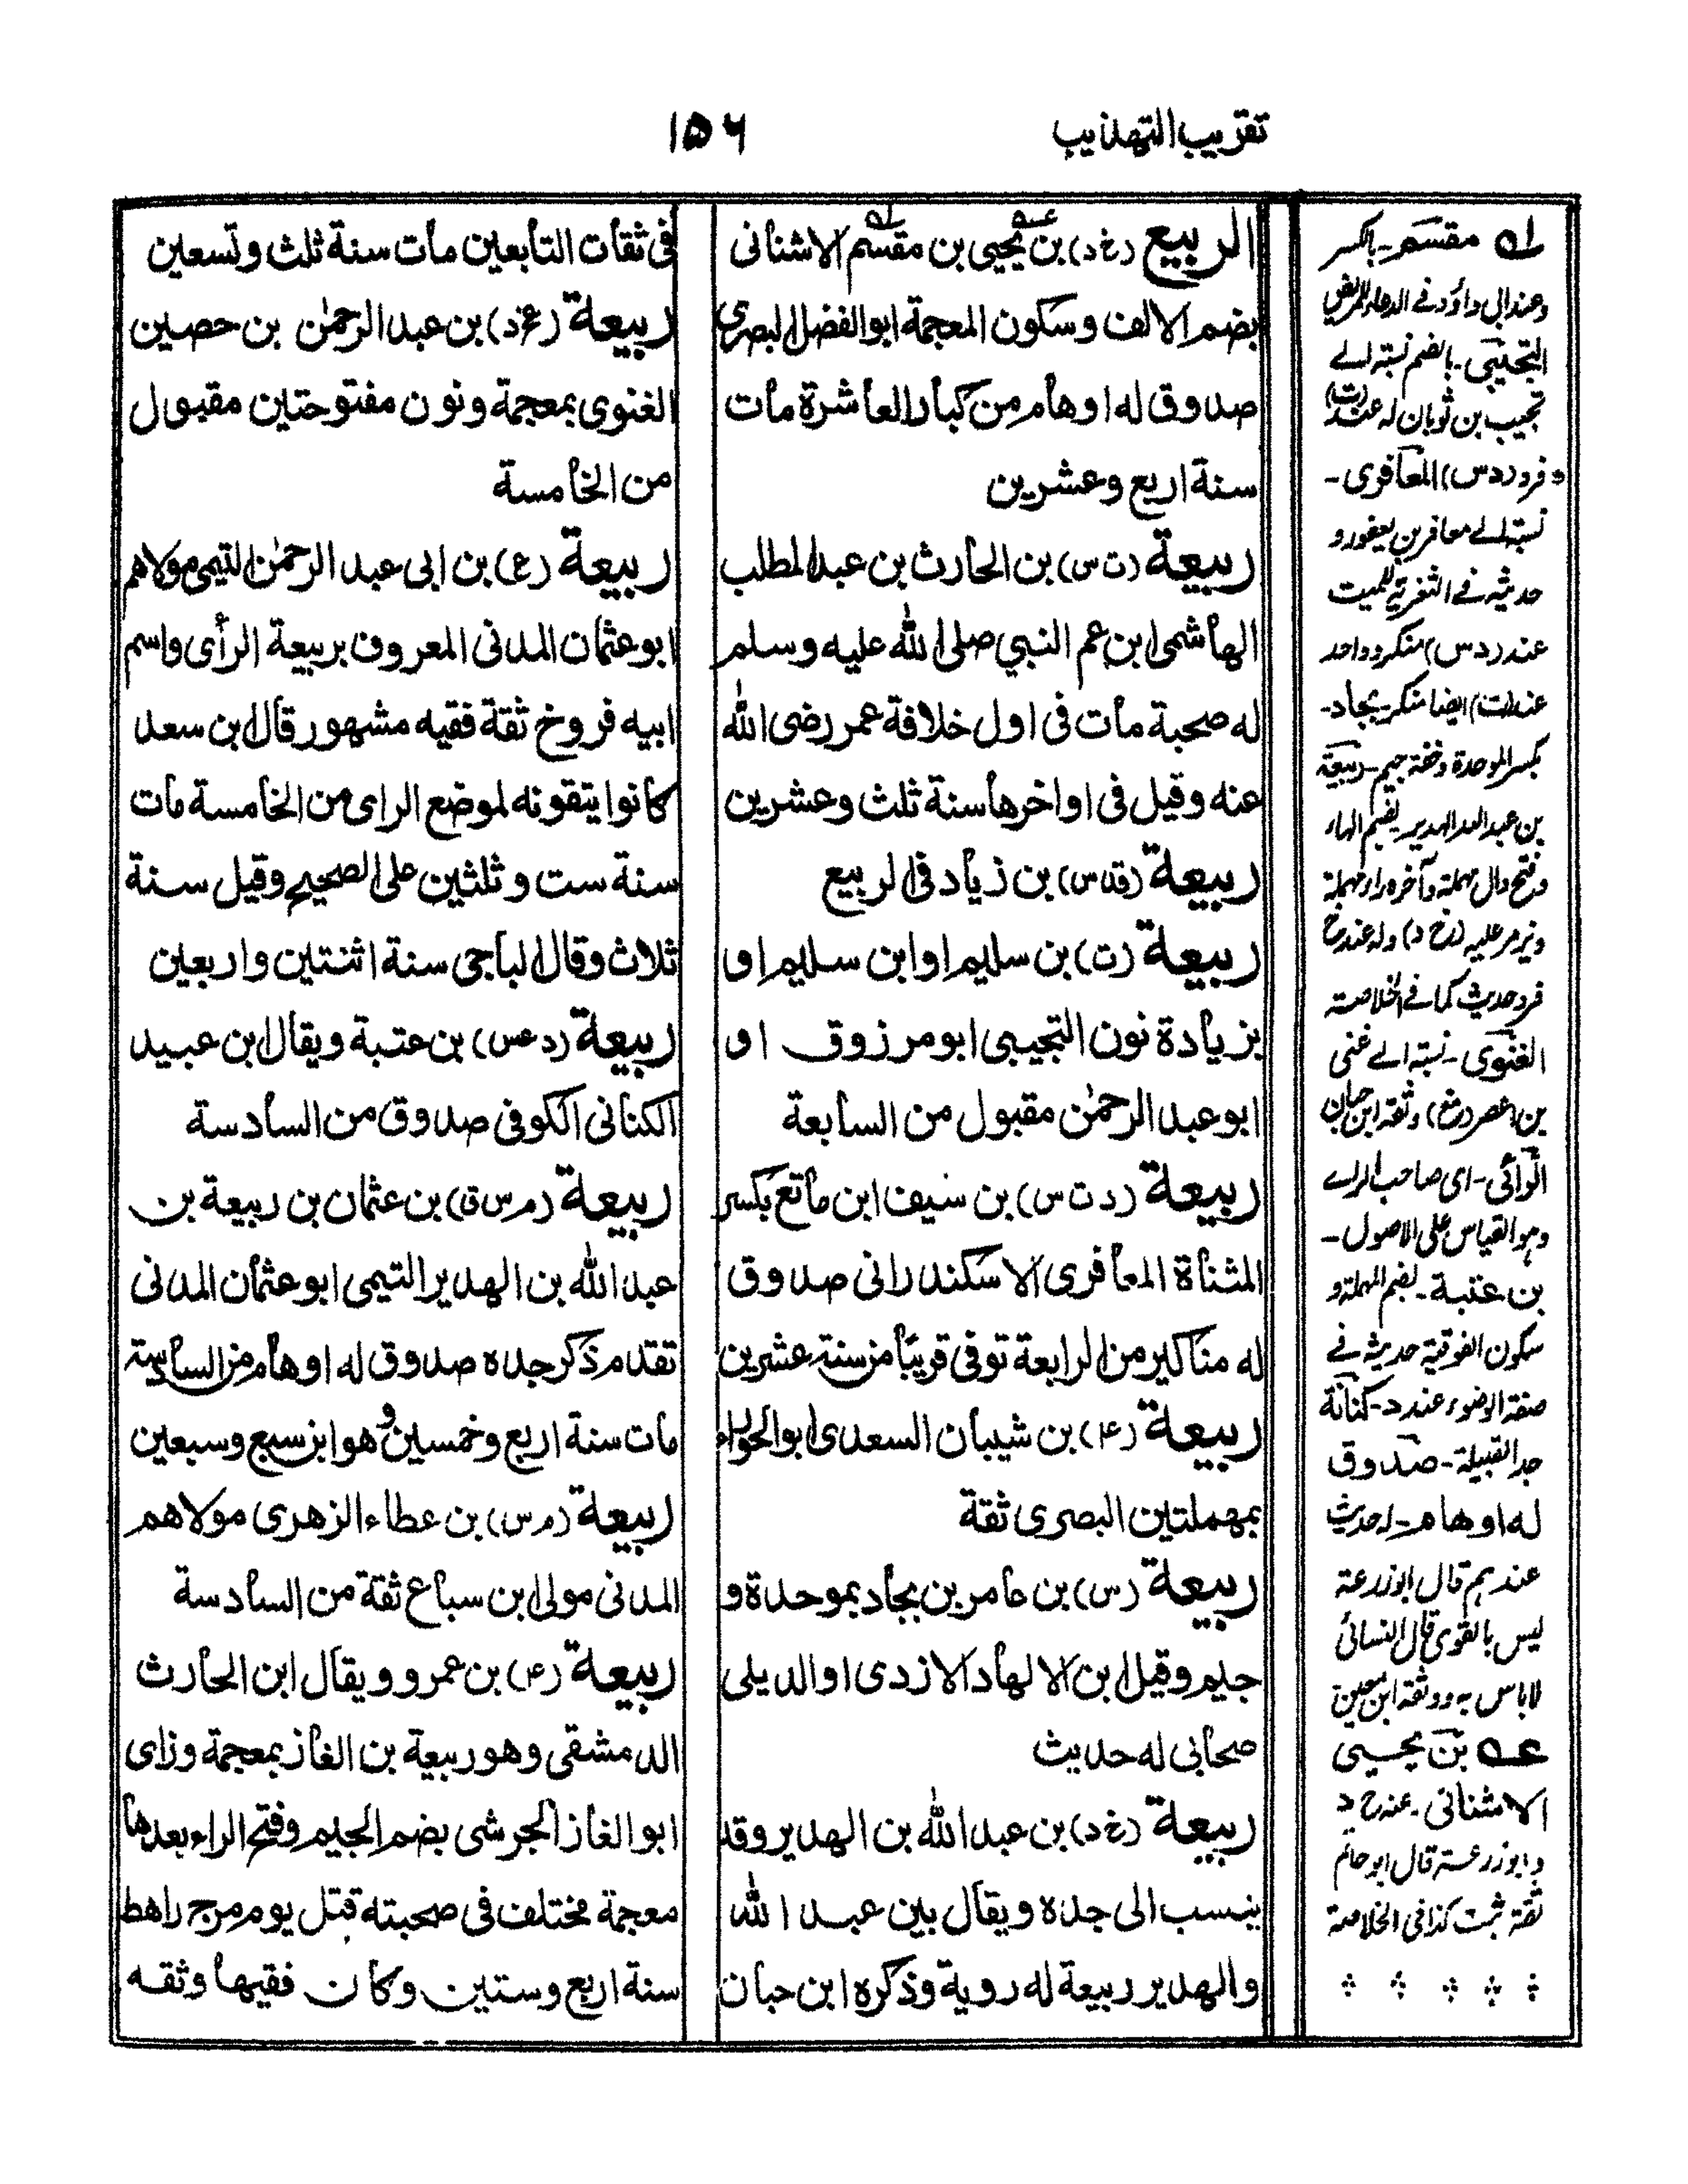 تقريب التهذيب
١٥٦
الربيع (خ د) بن يحيى بن مقسم الاشنانى
بضم الالف وسكون المعجمة ابو الفضل البصرى
صدوق له اوهام من كبار العاشرة مات
سنة اربع وعشرين
ربيعة (ت س) بن الحارث بن عبد المطلب
الهاشمى ابن عم النبي صلى الله عليه وسلم
له صحبة مات فى اول خلافة عمر رضى الله
عنه وقيل فى اواخرها سنة ثلث وعشرين
ربيعة (قد س) بن زياد فى الربيع
ربيعة (ت) بن سليم او ابن سليم او
بزيادة نون التجيبى ابو مرزوق او
ابو عبد الرحمٰن مقبول من السابعة
ربيعة (د ت س) بن سيف ابن ماتع بكسر
المثناة المعافرى الاسكندرانى صدوق
له مناكير من الرابعة توفى قريبا من سنة عشرين
ربيعة (۴) بن شيبان السعدى ابو الحوراء
بمهملتين البصرى ثقة
ربيعة (س) بن عامر بن بجاد بموحدة و
جيم وقيل ابن الالهاد الازدى او الديلى
صحابى له حديث
ربيعة (خ د) بن عبد الله بن الهدير وقد
ينسب الى جده ويقال بين عبد الله
والهدير ربيعة له روية وذكره ابن حبان
فى ثقات التابعين مات سنة ثلث وتسعين
ربيعة (عخ د) بن عبد الرحمٰن بن حصين
الغنوى بمعجمة ونون مفتوحتين مقبول
من الخامسة
ربيعة (ع) بن ابى عبد الرحمٰن التيمى مولاهم
ابو عثمان المدنى المعروف بربيعة الرأى واسم
ابيه فروخ ثقة فقيه مشهور قال ابن سعد
كانوا يتقونه لموضع الراى من الخامسة مات
سنة ست وثلثين على الصحيح وقيل سنة
ثلاث وقال الباجى سنة اثنتين واربعين
ربيعة (د عس) بن عتبة ويقال ابن عبيد
الكنانى الكوفى صدوق من السادسة
ربيعة (م س ق) بن عثمان بن ربيعة بن
عبد الله بن الهدير التيمى ابو عثمان المدنى
تقدم ذكر جده صدوق له اوهام من السادسة
مات سنة اربع وخمسين وهو ابن سبع وسبعين
ربيعة (م س) بن عطاء الزهرى مولاهم
المدنى مولى ابن سباع ثقة من السادسة
ربيعة (۴) بن عمرو ويقال ابن الحارث
الدمشقى وهو ربيعة بن الغاز بمعجمة وزاى
ابو الغاز الجرشى بضم الجيم وفتح الراء بعدها
معجمة مختلف فى صحبته قتل يوم مرج راهط
سنة اربع وستين وكان فقيها وثقه
له مقسم - بالكسر
وعند ابى داؤد فے الدعاء للمريض
التجيبى - بالضم نسبته الے
تجيب بن ثوبان له عند (ت)
و فرد (د س) المعافرى -
نسبته الے معافر بن يعفور و
حديثه فے التعزية للميت
عند (د س) منكر وواحد
عند (ت) ايضا منكر بجاد -
بكسر الموحدة وخفة جيم - ربيعة
بن عبد الله الهدير بضم الهاء
وفتح دال مهملة وآخره راء مهملة
ويرمز عليه (خ د) وله عند خ
فرد حديث كما فے الخلاصة
الغنوى - نسبته الے غنى
بن اعصر وثقه ابن حبان
الرائى - اى صاحب الراے
وهو القياس على الاصول -
بن عتبة - بضم المهملة و
سكون الفوقية حديثه فے
صفة الوضوء عند د - كنانة
جد القبيلة - صدوق
له اوهام - له حديث
عندهم قال ابو زرعة
ليس بالقوى قال النسائى
لا باس به ووثقه ابن معين
عه بن يحيى
الاشنانى - عنه خ د
و ابو زرعة قال ابو حاتم
ثقة ثبت كذا فى الخلاصة